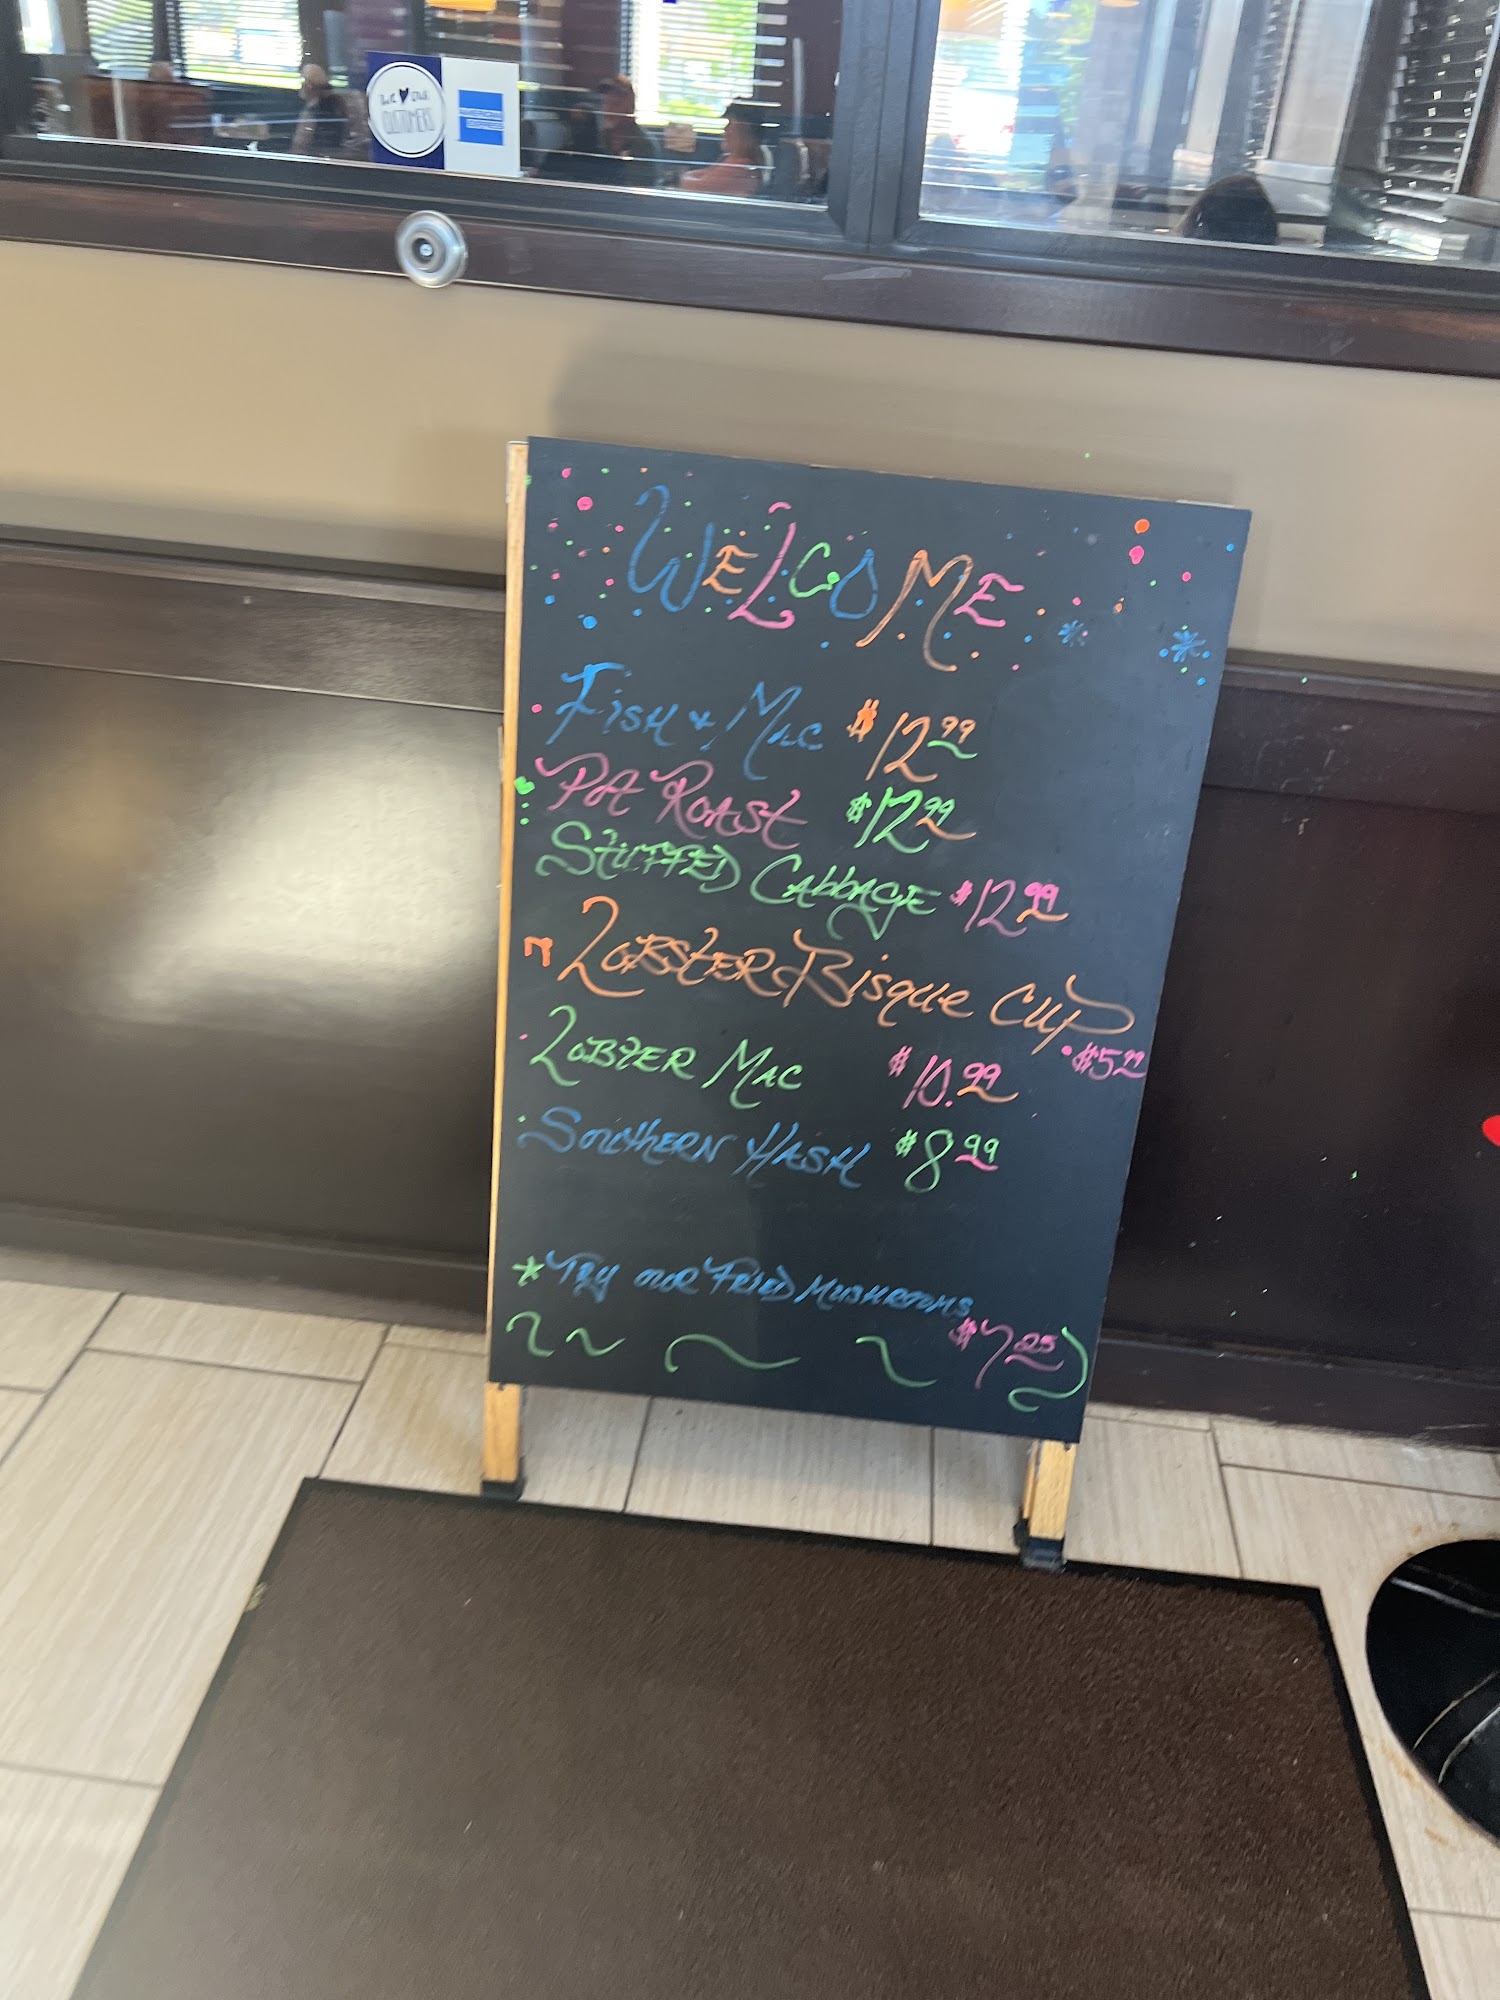 WE ♥ OUR
CUSTOMERS
AMERICAN
EXPRESS
WELCOME
FISH & MAC $12.99
POT ROAST $12.99
STUFFED CABBAGE $12.99
LOBSTER BISQUE CUP
$5.99
LOBZER MAC $10.99
SOUTHERN HASH $8.99
*TRY OUR FRIED MUSHROOMS
$7.25